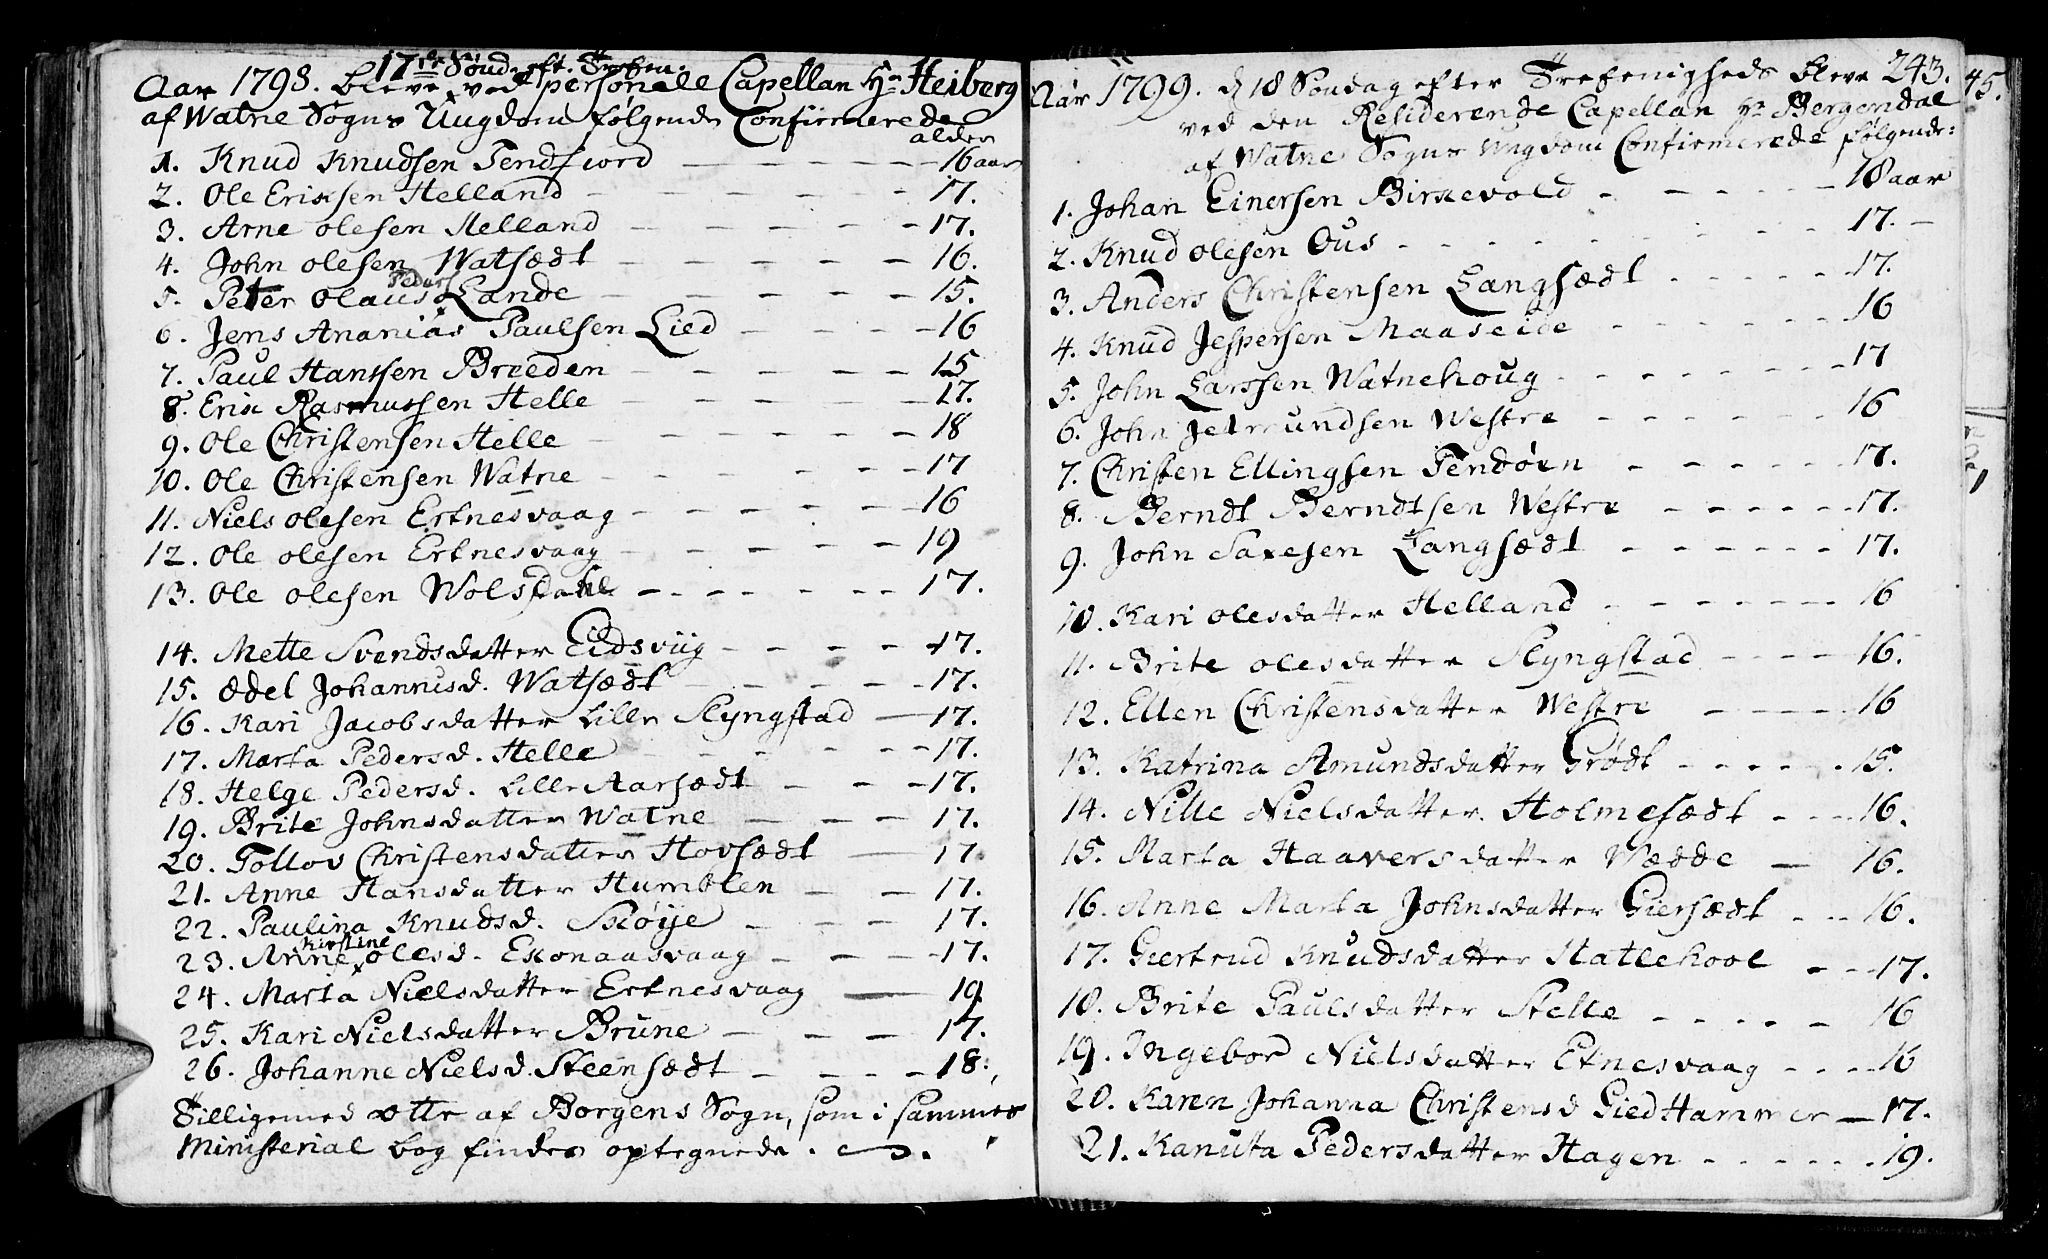 17de Sønd. eft. Trefon.
Aar 1798. bleve ved personele Capellan Hr Heiberg
af Watne Sogns Ungdom følgende Confirmerede
alder
1. Knud Knudsen Tendfiord - - - 16 aar
2. Ole Erixsen Helland - - - 17.
3. Arne olesen Helland - - - 17.
4. John olesen Watsædt - - - 16.
Peders.
5. Peter Olaus Lande - - - 15.
6. Jens Ananias Paulsen Lied - - - 16
7. Paul Hanssen Breeden - - - 15
8. Erix Rasmussen Helle - - - 17.
9. Ole Christensen Helle - - - 18
10. Ole Christensen Watne - - - 17
11. Niels olesen Erknesvaag - - - 16
12. Ole olesen Erknesvaag - - - 19
13. Ole olesen Wolsdahl - - - 17.
14. Mette Svendsdatter Eidsviig - - - 17.
15. Ædel Johannisd. Watsædt - - - 17.
16. Kari Jacobsdatter Lille Slyngstad - 17.
17. Marta Pedersd. Helle - - - 17.
18. Helge Pedersd. Lille Aarsædt - - - 17.
19. Brite Johnsdatter Watne - - - 17.
20. Tollov Christensdatter Hovsædt - 17
21. Anne Hansdatter Humblen - - - 17.
22. Paulina Knudsd. Skøye - - - 17.
Kirstine
23. Anne olesd. Exonaasvaag - - - 17.
24. Marta Nielsdatter Erknesvaag - 19
25. Kari Nielsdatter Brune - - - 17.
26. Johanne Nielsd. Steensædt - - - 18.
Tilligemed otte af Borgens Sogn, som i sammes
Ministerial bog findes optegnede.
243.
Aar 1799. d 18 Søndag efter Trefenigheds bleve
ved den Residerende Capellan Hr Bergendal
af Watne Sogns Ungdom Confirmerede følgende:
1. Johan Einersen Birkevold - - - 18 aar
2. Knud olesen Ous - - - 17.
3. Anders Christensen Langsædt - - - 17.
4. Knud Jespersen Maaseide - - - 16
5. John Larssen Watnehoug - - - 17
6. John Jetmundsen Westre - - - 16
7. Christen Ellingsen Tendøen - - - 17.
8. Berndt Berndtsen Westre - - - 17.
9. John Saxesen Langsædt - - - 17.
10. Kari olesdatter Helland - - - 16
11. Brite olesdatter Slyngstad - - - 16.
12. Ellen Christensdatter Westre - - - 16
13. Katrina Amundsdatter Grødt - - - 15.
14. Nille Nielsdatter Holmesædt - - - 16.
15. Marta Haaversdatter Wædde - 16.
16. Anne Marta Johnsdatter Giersædt - - 16.
17. Giertrud Knudsdatter Hatlehool - - - 17.
18. Brite Paulsdatter Stelle - - - 16
19. Ingebor Nielsdatter Etnesvaag - - - 16
20. Karen Johanna Christensd Giedhammer - 17.
21. Kanuta Pedersdatter Hagen - - - 19.
45.